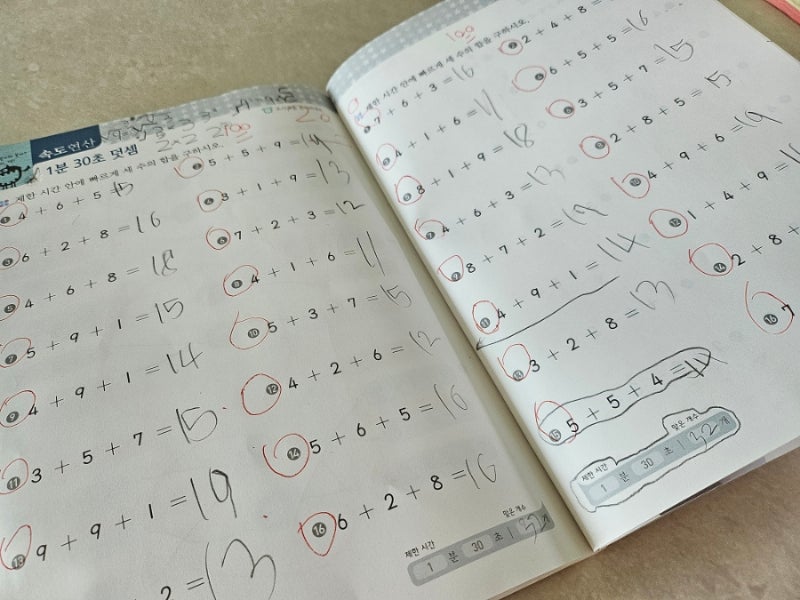 속도연산
1분 30초 덧셈
100
제한 시간 안에 빠르게 세 수의 합을 구하시오.
1 4 + 6 + 5 = 15
2 5 + 5 + 9 = 19
3 6 + 2 + 8 = 16
4 3 + 1 + 9 = 13
5 4 + 6 + 8 = 18
6 7 + 2 + 3 = 12
7 5 + 9 + 1 = 15
8 4 + 1 + 6 = 11
9 4 + 9 + 1 = 14
10 5 + 3 + 7 = 15
11 3 + 5 + 7 = 15
12 4 + 2 + 6 = 12
13 9 + 9 + 1 = 19
14 5 + 6 + 5 = 16
2 = 13
16 6 + 2 + 8 = 16
제한 시간 맞은 개수
1 분 30 초
100
제한 시간 안에 빠르게 세 수의 합을 구하시오.
1 7 + 6 + 3 = 16
2 2 + 4 + 8 =
3 4 + 1 + 6 = 11
4 6 + 5 + 5 = 16
5 8 + 1 + 9 = 18
6 3 + 5 + 7 = 15
7 4 + 6 + 3 = 13
8 2 + 8 + 5 = 15
9 8 + 7 + 2 =
10 4 + 9 + 6 = 19
11 4 + 9 + 1 = 14
12 1 + 4 + 9 =
13 3 + 2 + 8 = 13
14 2 + 8 +
15 5 + 5 + 4 = 14
16 7
제한 시간 맞은 개수
1 분 30 초 32 개